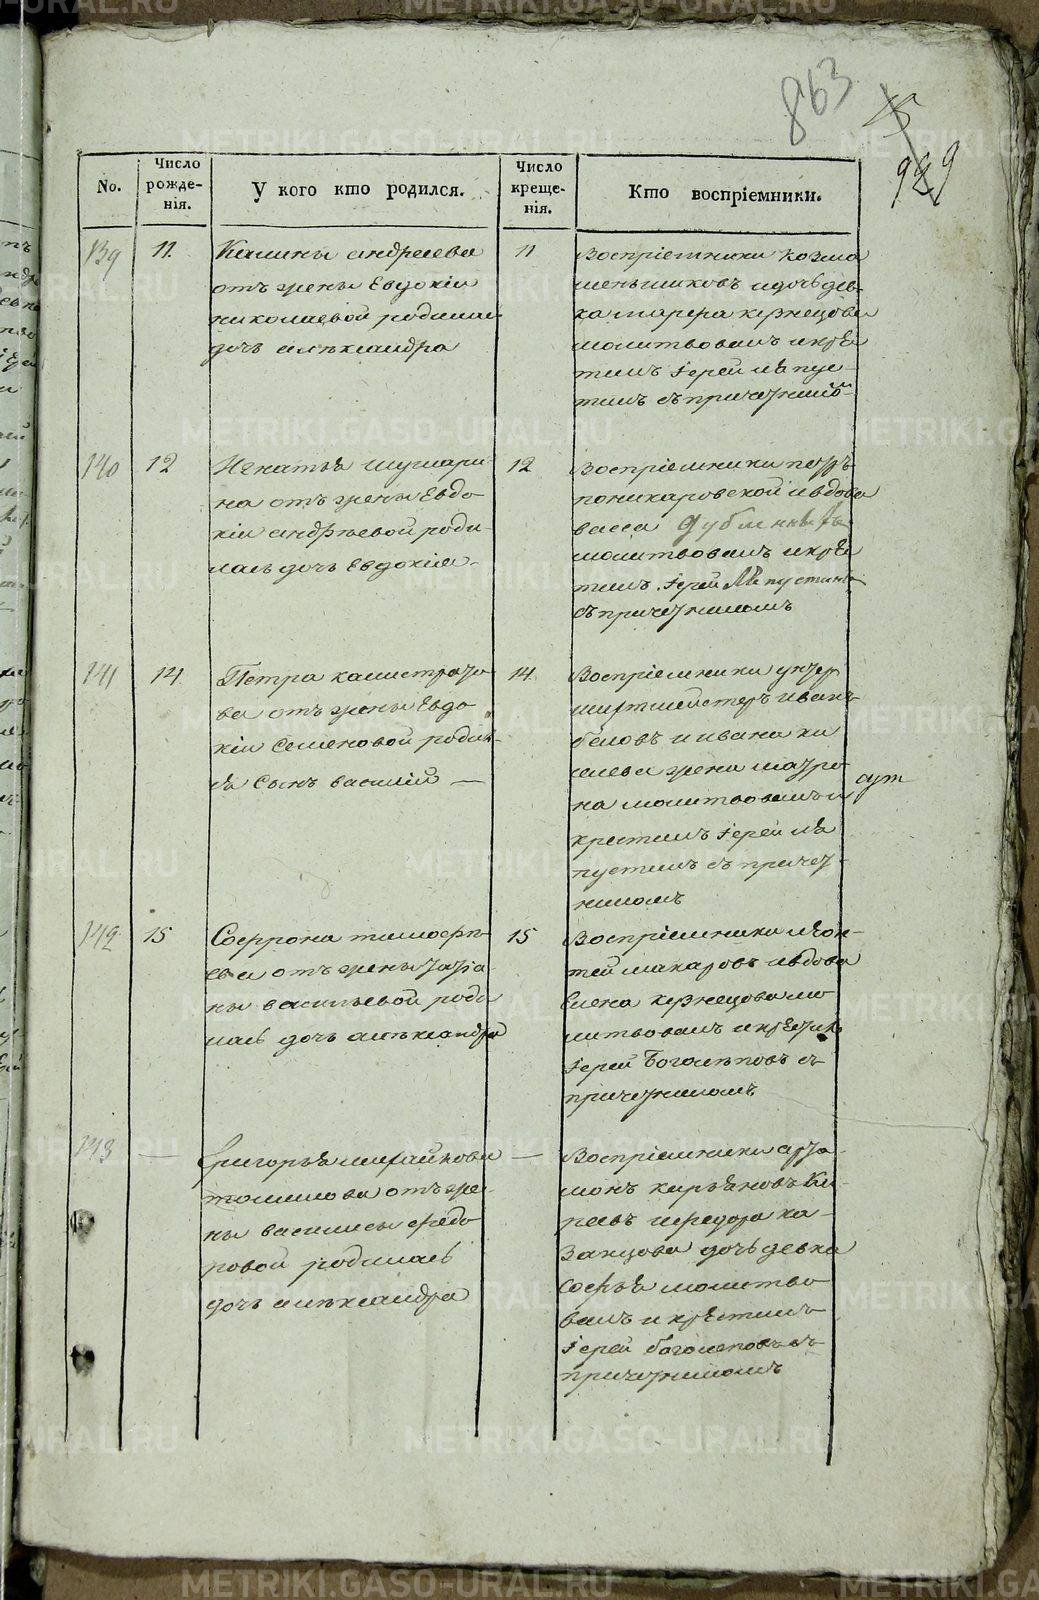 863
929
No.
Число рожде-нія.
У кого кто родился.
Число креще-нія.
Кто воспріемники.
139
11
Калины андреева
отъ жены Евдокіи
николаевой родилась
дочь александра
11
Воспріемники козма
меньшиковъ и дочь дев-
ка марфа кузнецова
молитвовалъ и кре
тилъ Іерей
съ причетникомъ
140
12
Игнатья шушари
на отъ жены Евдо
кіи андреевой роди
лась дочь Евдокія
12
Воспріемники петръ
поникаровской и вдова
васса
молитвовалъ и кре
тилъ Іерей
съ причетникомъ
141
14
Петра калистрато
ва отъ жены Евдо
кіи Семеновой роди
ся Сынъ василій —
14
Воспріемники унтер
шихтмейстеръ иванъ
беловъ и ивана ки
селева жена матро
на молитвовалъ и
крестилъ Іерей
съ причет-
никомъ
142
15
Софрона тимофее-
ева отъ жены татіа
ны васильевой роди
лась дочь александра
15
Воспріемники леон-
тей макаровъ и вдова
Елена кузнецова мо
литвовалъ и крестилъ
Іерей Боголеповъ съ
причетникомъ
143
—
Григорья михайлова
томилова отъ же-
ны василисы федо
ровой родилась
дочь александра
—
Воспріемники арта-
монъ
и федора ка-
занцова дочь девка
Софья молитво
валъ и крестилъ
Іерей боголеповъ съ
причетникомъ
METRIKI.GASO-URAL.RU